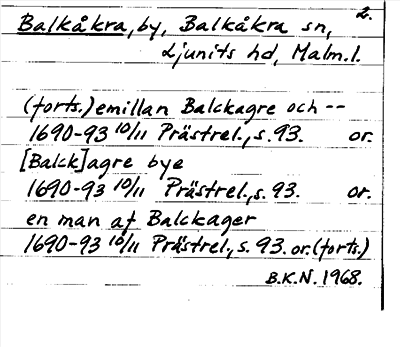 2.
Balkåkra, by, Balkåkra sn,
Ljunits hd, Malm.l.
(forts.) emillan Balckagre och --
1690-93 10/11 Prästrel., s. 93. or.
[Balck]agre bye
1690-93 10/11 Prästrel., s. 93. or.
en man af Balckager
1690-93 10/11 Prästrel., s. 93. or. (forts.)
B.K.N. 1968.